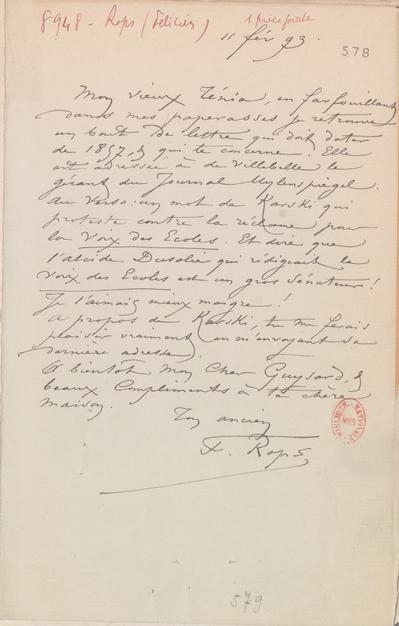 8948 - Rops (Félicien)
1 pièce jointe
11 fév 93.
578
Mon vieux Ténia, en farfouillant
dans mes paperasses je retrouve
un bout de lettre qui doit dater
de 1857, & qui te concerne. Elle
est adressée à de Villebelle le
gérant du Journal Uylenspiegel.
Au verso: un mot de Karski qui
proteste contre la réclame pour
la Voix des Ecoles. Et dire que
l'alcide Dusolier qui rédigeait la
Voix des Ecoles est un gros Sénateur!
Je l'aimais mieux maigre!
A propos de Karski, tu me ferais
plaisir vraiment en m'envoyant sa
dernière adresse.
A bientôt mon Cher Guysard, &
beaux Compliments à ta chère
maison.
Ton ancien
F. Rops
BIBLIOTH. NATIONALE
MSS
579